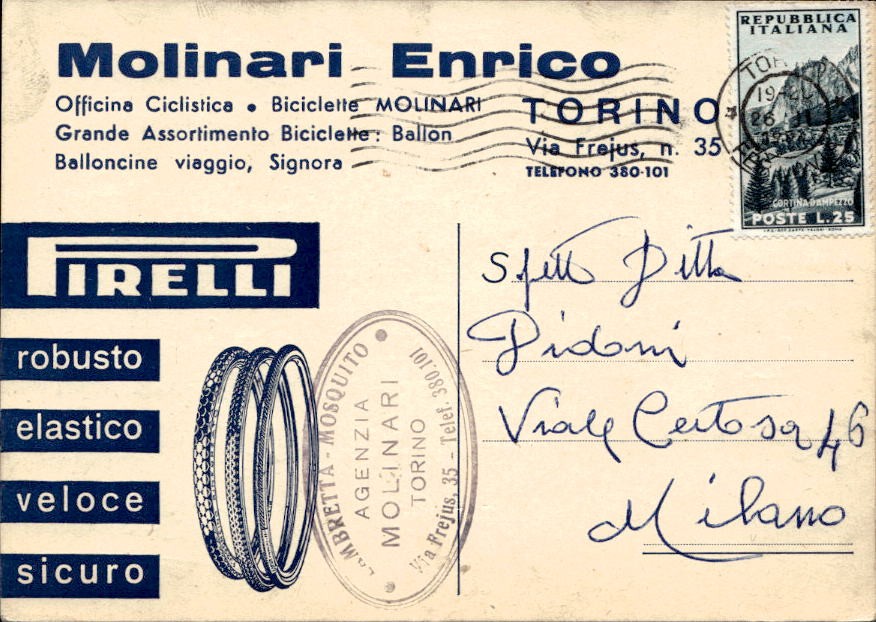 Molinari Enrico
Officina Ciclistica • Biciclette MOLINARI
Grande Assortimento Biciclette: Ballon
Balloncine viaggio, Signora
TORINO
Via Frejus, n. 35
TELEFONO 380-101
REPUBBLICA
ITALIANA
TOR
19
26
CORTINA D'AMPEZZO
POSTE L.25
PIRELLI
robusto
elastico
veloce
sicuro
LAMBRETTA - MOSQUITO
AGENZIA
MOLINARI
TORINO
Via Frejus, 35 - Telef. 380.101
Spett Ditta
Didoni
Viale Certosa 46
Milano